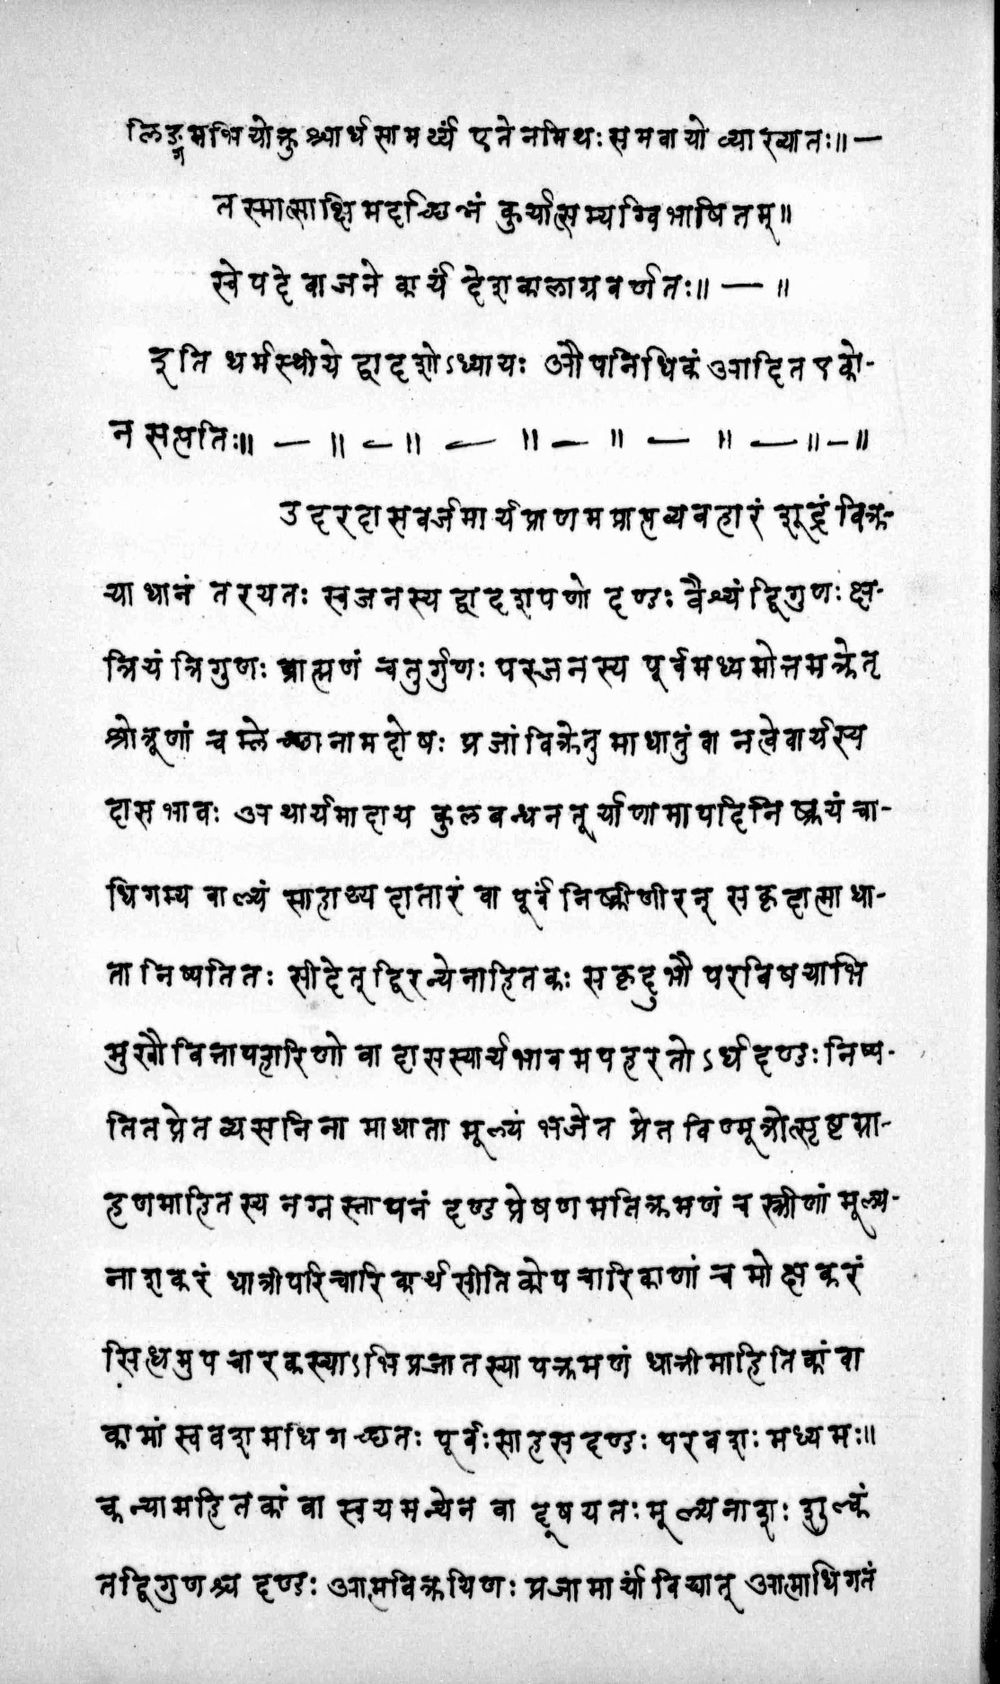 लिङ्गमभियोक्तुश्चार्धसामर्थ्यं एतेनमिथःसमवायो व्याख्यातः॥ —
तस्मात्साक्षिमदच्छिन्नं कुर्यात्सम्यग्विभाषितम्॥
स्वेपदे वाजने कार्यं देशकालाग्रवर्णतः॥ — ॥
इति धर्मस्थीये द्वादशोऽध्यायः औपनिधिकं आदित एको-
न सप्ततिः॥ — ॥ — ॥ — ॥ — ॥ — ॥ — ॥ — ॥
उदरदासवर्जमार्यप्राणमप्राप्तव्यवहारं शूद्रं विक्र-
याधानं तरयतः स्वजनस्य द्वादशपणो दण्डः वैश्यं द्विगुणः क्ष-
त्रियं त्रिगुणः ब्राह्मणं चतुर्गुणः परजनस्य पूर्वमध्यमोत्तमक्रेतृ
श्रोत्रूणां चम्लेच्छानामदोषः प्रजां विक्रेतुमाधातुं वा नत्वेवार्यस्य
दासभावः अथार्यमादाय कुलबन्धनतूर्याणामापदिनिष्क्रयं चा-
धिगम्य बाल्यं साहाय्यदातारं वा पूर्वं निष्क्रीणीरन् सकृदात्माधा-
ता निष्पतितः सीदेत् द्विरन्येनाहितकः सकृदुभौ परविषयाभि
मुखौ वित्तापहारिणो वा दासस्यार्यभावमपहरतोऽर्धदण्डः निष्प-
तितप्रेतव्यसनिनामाधाता मूल्यं भजेत प्रेतविण्मूत्रोत्सृष्टग्रा-
हणमाहितस्य नग्नस्नापनं दण्डप्रेषणमतिक्रमणं च स्त्रीणां मूल्य-
नाशकरं धात्रीपरिचारिकार्धसीतिकोपचारिकाणां चमोक्षकरं
सिध्धमुपचारकस्याऽभिप्रजातस्यापक्रमणं धात्रीमाहितिकां वा
कामां स्ववशमधिगच्छतः पूर्वःसाहसदण्डः परवशः मध्यमः॥
कन्यामहितकां वा स्वयमन्येन वा दूषयतः मूल्यनाशः शुल्कं
तद्द्विगुणश्च दण्डः आत्मविक्रयिणः प्रजामार्यां विद्यात् आत्माधिगतं